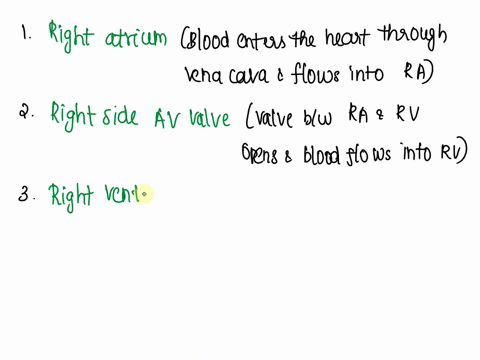 1. Right atrium (Blood enters the heart through
vena cava & flows into RA)
2. Right side AV valve (valve b/w RA & RV
opens & blood flows into RV)
3. Right vent